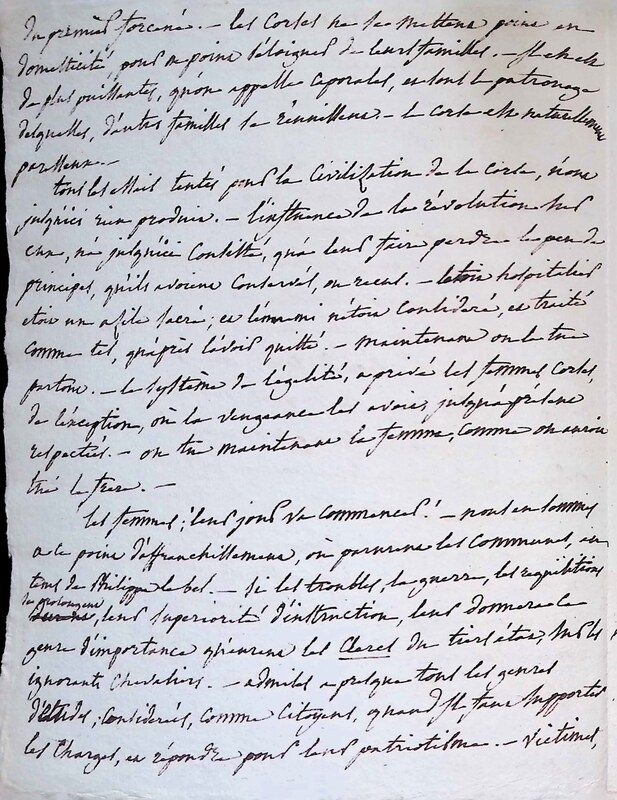 du premier forcené. – les Corses ne se mettent point en
domesticité, pour ne point s'éloigner de leurs familles. – Il en est
de plus puissantes, qu'on appelle caporales, et sous le patronage
desquelles, d'autres familles se réunissent. – le corse est naturellement
paresseux. –
tous les essais tentés pour la Civilisation de la Corse, n'ont
jusqu'ici rien produit. – l'influence de la révolution sur
eux, n'a jusqu'ici consisté, qu'à leur faire perdre le peu de
principes, qu'ils avoient conservés, ou reçus. – le toit hospitalier
étoit un asile sacré; et l'ennemi n'étoit considéré, et traité
comme tel, qu'après l'avoir quitté. – maintenant on le tue
partout. – le système de l'égalité, a privé les femmes Corses,
de l'exception, où la vengeance les avoit jusqu'à présent
respectées. – on tue maintenant la femme, comme on auroit
tué le frère. –
les femmes! leur jour va commencer! – nous en sommes
à ce point d'affranchissement, où parurent les Communes, au
tems de Philippe le bel. – si les troubles, la guerre, les réquisitions
se prolongent
leur supériorité d'instruction, leur donnera le
genre d'importance qu'eurent les Clercs du tiers état, sur les
ignorants Chevaliers. – admises à presque tous les genres
d'études; considérées, comme Citoyens, quand il faut supporter
les Charges, et répondre pour leur patriotisme. – victimes,